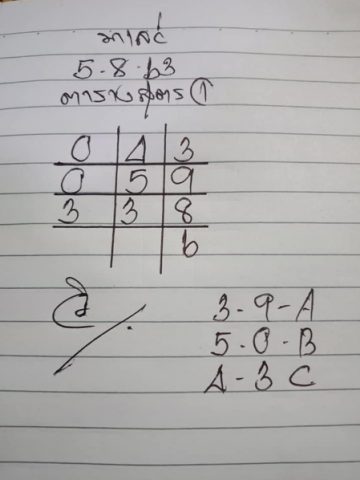 มาเลย์
5-8-63
ตารางสูตร ①
0 4 3
0 5 9
3 3 8
6
3-9-A
5-0-B
4-3 C